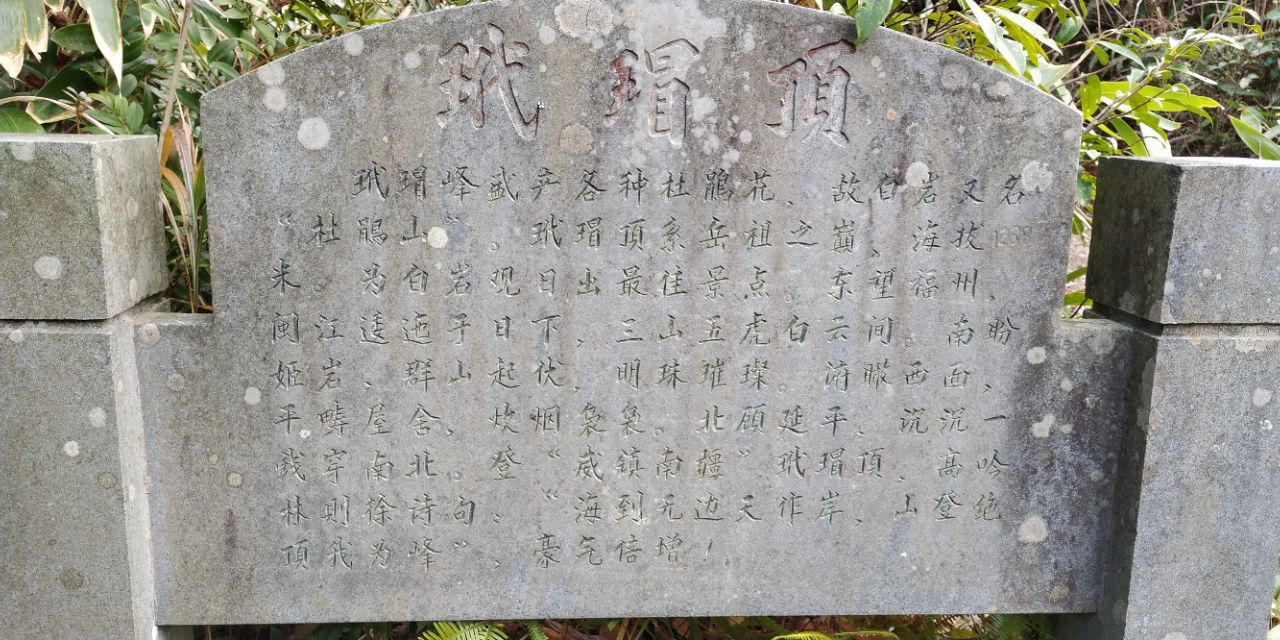 玳瑁顶
玳瑁峰盛产各种杜鹃花,故白岩又名
“杜鹃山”。玳瑁顶系岳祖之巅,海拔
米。为白岩观日出最佳景点。东望福州、
闽江逶迤乎日下,三山五虎白云间。南盼
姬岩、群山起伏,明珠璀璨。俯瞰西面,
平畴屋舍,炊烟袅袅。北顾延平,沉沉一
线穿南北。登“威镇南疆”玳瑁顶,高吟
林则徐诗句:“海到无边天作岸,山登绝
顶我为峰”,豪气倍增!